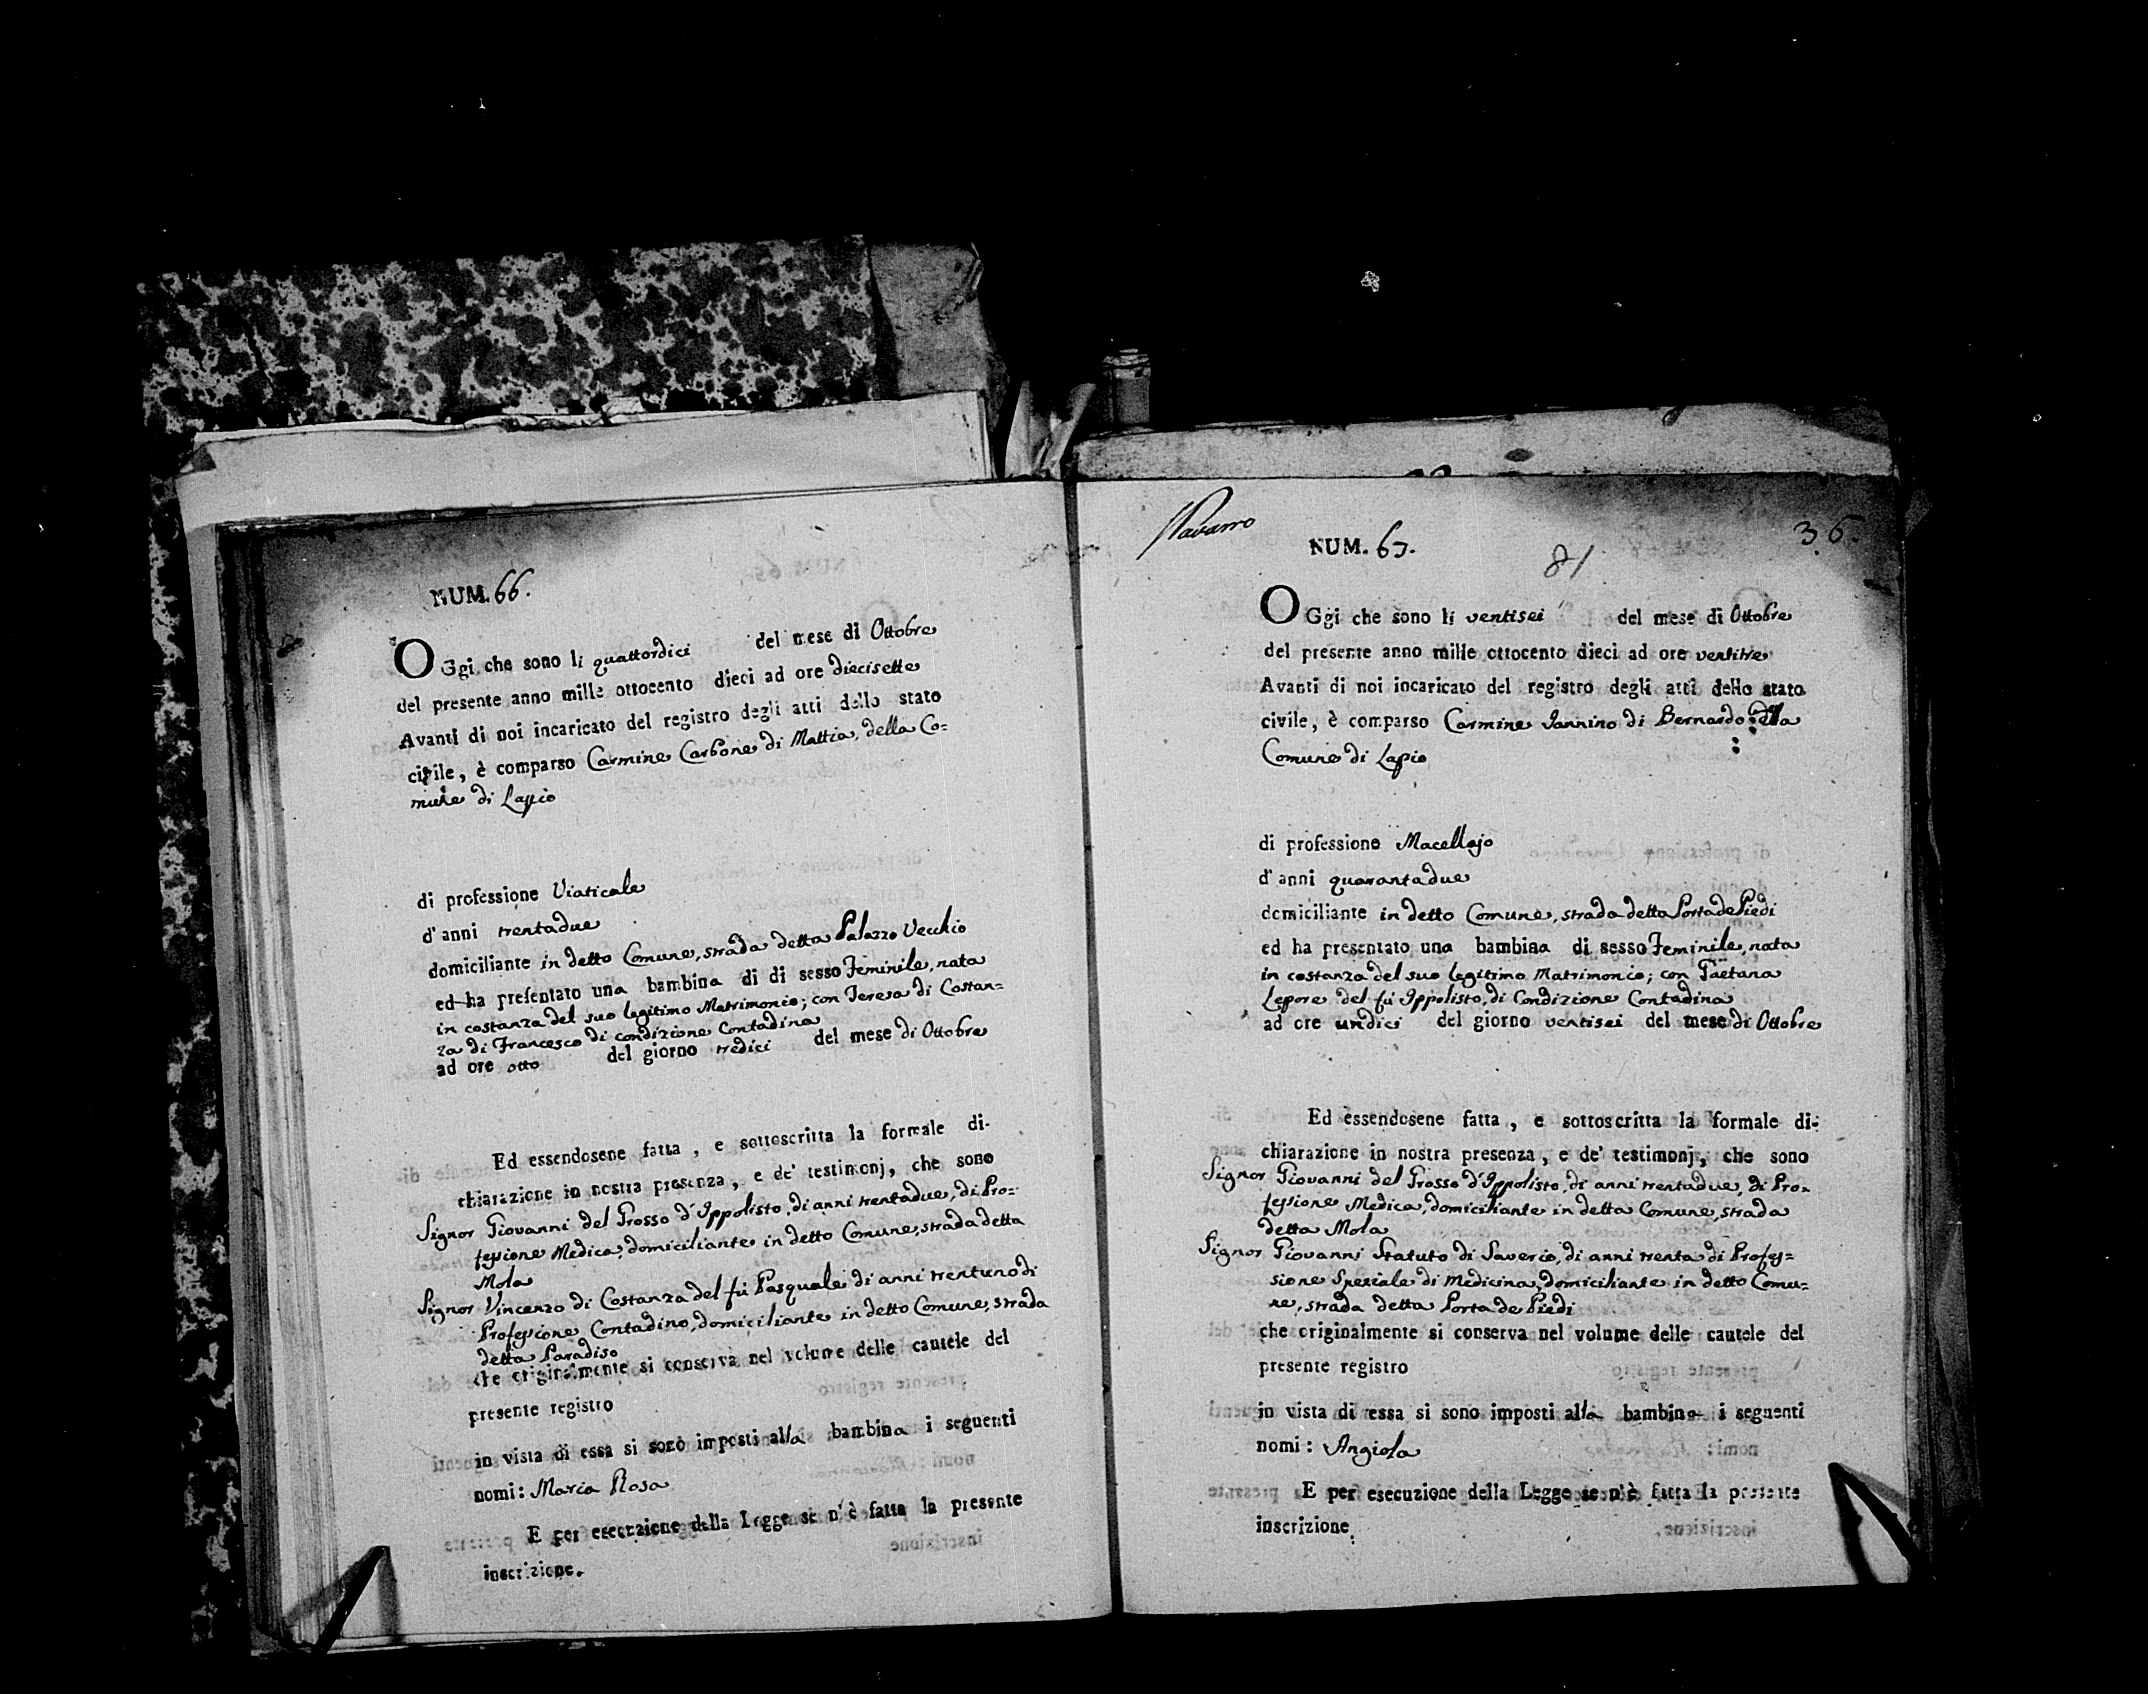 NUM. 66.
OGgi che sono li quattordici del mese di Ottobre
del presente anno mille ottocento dieci ad ore diecisette
Avanti di noi incaricato del registro degli atti dello stato
civile, è comparso Carmine Carbone di Mattia, della Co=
mune di Lapio
di professione Viaticale
d'anni trentadue
domiciliante in detto Comune, strada detta Palazzo Vecchio
ed ha presentato una bambina di di sesso Feminile, nata
in costanza del suo legitimo Matrimonio; con Teresa di Costan=
za di Francesco di condizione Contadina
ad ore otto del giorno tredici del mese di Ottobre
Ed essendosene fatta, e sottoscritta la formale di-
chiarazione in nostra presenza, e de' testimonj, che sono
Signor Giovanni del Grosso d'Ippolisto, di anni trentadue, di Pro=
fessione Medica, domiciliante in detto Comune, strada detta
Mola
Signor Vincenzo di Costanza del fù Pasquale di anni trentuno di
Professione Contadino, domiciliante in detto Comune, strada
detta Paradiso
che originalmente si conserva nel volume delle cautele del
presente registro
in vista di essa si sono imposti alla bambina i seguenti
nomi: Maria Rosa
E per esecuzione della Legge se n'è fatta la presente
inscrizione.
Navarro
NUM. 67.
81
36.
OGgi che sono li ventisei del mese di Ottobre
del presente anno mille ottocento dieci ad ore ventitre
Avanti di noi incaricato del registro degli atti dello stato
civile, è comparso Carmine Iannino di Bernardo della
Comune di Lapio
di professione Macellajo
d'anni quarantadue
domiciliante in detto Comune, strada detta Porta de Piedi
ed ha presentato una bambina di sesso Feminile, nata
in costanza del suo legitimo Matrimonio; con Gaetana
Lepore del fù Ippolisto, di Condizione Contadina
ad ore undici del giorno ventisei del mese di Ottobre
Ed essendosene fatta, e sottoscritta la formale di-
chiarazione in nostra presenza, e de' testimonj, che sono
Signor Giovanni del Grosso d'Ippolisto, di anni trentadue, di Pro=
fessione Medica, domiciliante in detta Comune, strada
detta Mola
Signor Giovanni Statuto di Saverio, di anni trenta di Profes=
sione Speziale di Medicina, domiciliante in detto Comu=
ne, strada detta Porta de Piedi
che originalmente si conserva nel volume delle cautele del
presente registro
in vista di essa si sono imposti alla bambina i seguenti
nomi: Angiola
E per esecuzione della Legge se n'è fatta la presente
inscrizione.